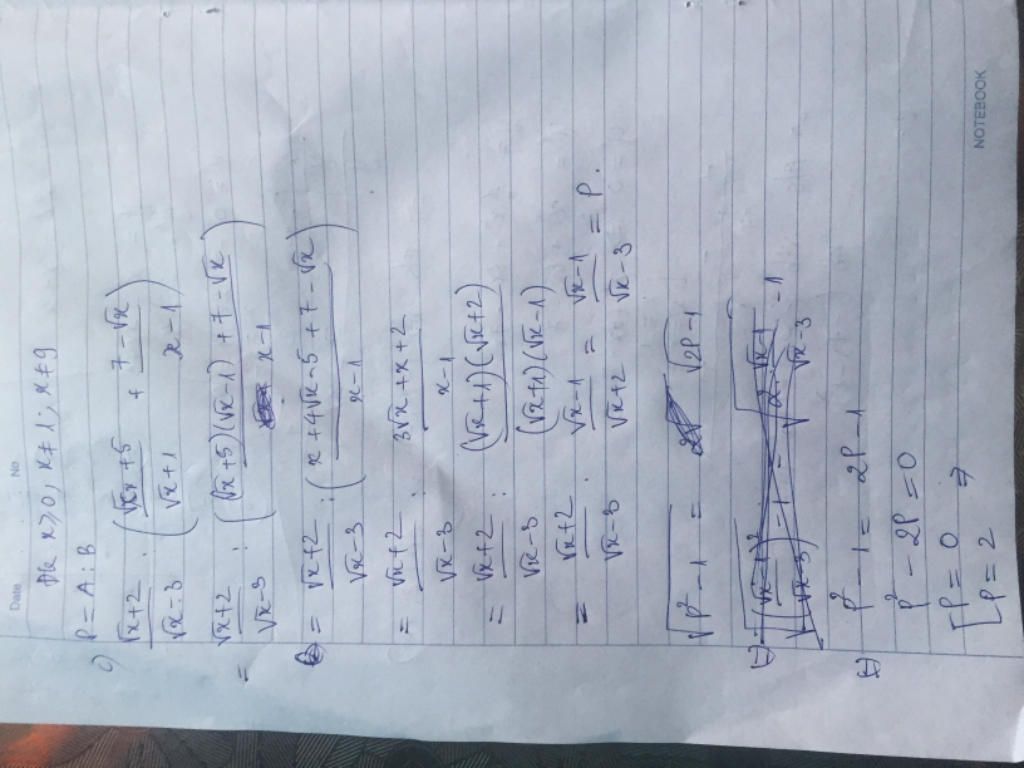 Date No
Đk x ≥ 0, x ≠ 1; x ≠ 9
c) P = A : B
(√x+2)/(√x-3) : ( (√x+5)/(√x+1) + (7-√x)/(x-1) )
= (√x+2)/(√x-3) : ( ((√x+5)(√x-1) + 7-√x)/(x-1) )
= (√x+2)/(√x-3) : ( (x+4√x-5+7-√x)/(x-1) )
= (√x+2)/(√x-3) : (3√x+x+2)/(x-1)
= (√x+2)/(√x-3) : ((√x+1)(√x+2))/((√x+1)(√x-1))
= (√x+2)/(√x-3) . (√x-1)/(√x+2) = (√x-1)/(√x-3) = P.
√(P²-1) = √(2P-1)
P²-1 = 2P-1
P²-2P=0
[P=0 ⇒
[P=2
NOTEBOOK